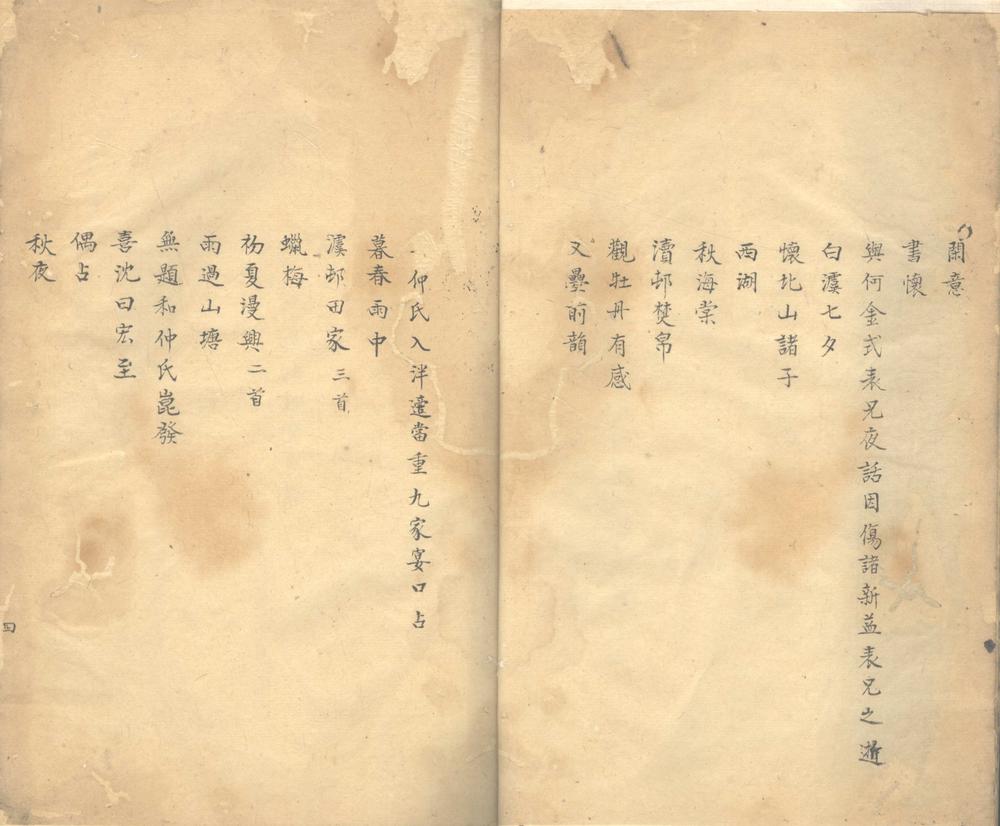 閨意
書懷
與何金式表兄夜話因傷諸新益表兄之逝
白漊七夕
懷北山諸子
西湖
秋海棠
瀆邨焚帛
觀牡丹有感
又疊前韻
仲氏入泮遶當重九家宴口占
暮春雨中
漊邨田家三首
蠟梅
初夏漫興二首
雨過山塘
無題和仲氏崑發
喜沈曰宏至
偶占
秋夜
四